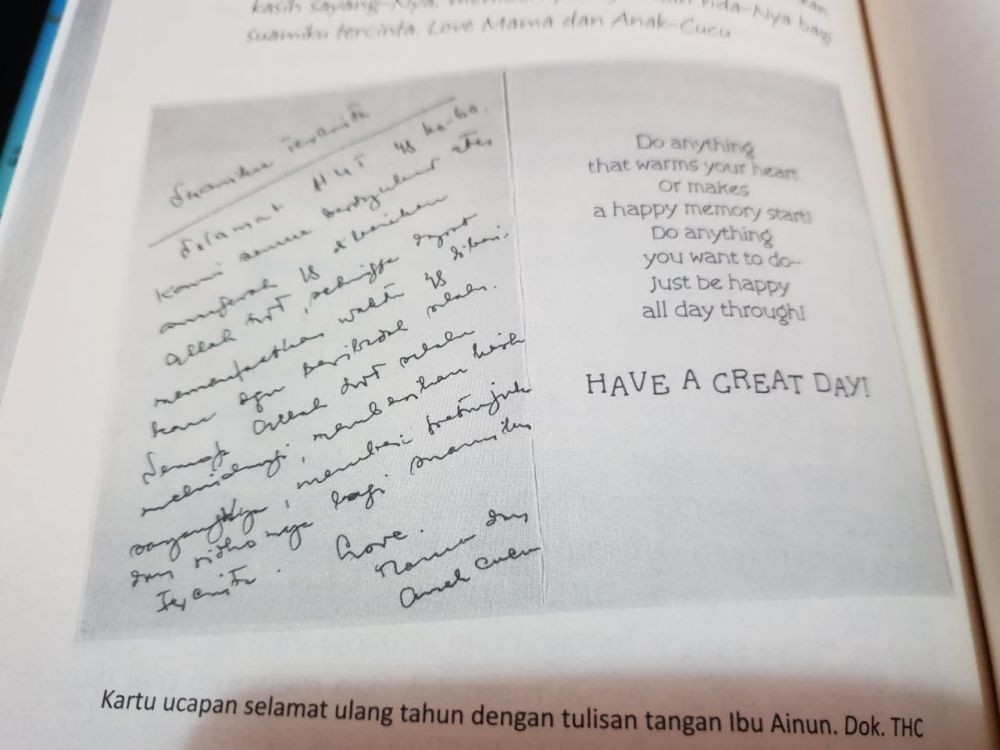 kasih sayang-Nya, rida-Nya bagi
suamiku tercinta. Love Mama dan Anak-Cucu
Suamiku tercinta
Selamat HUT yg ke-60.
Kami semua bersyukur atas
anugerah yg diberikan
Allah SWT, sehingga dapat
memanfaatkan waktu yg diberi-
kan agar beribadah selalu.
Semoga Allah SWT selalu
melindungi, memberikan kasih
sayangNya, memberi petunjuk
dan ridhonya bagi suamiku
tercinta. Love.
Mama dan
anak cucu
Do anything
that warms your heart
Or makes
a happy memory start!
Do anything
you want to do--
Just be happy
all day through!
HAVE A GREAT DAY!
Kartu ucapan selamat ulang tahun dengan tulisan tangan Ibu Ainun. Dok. THC